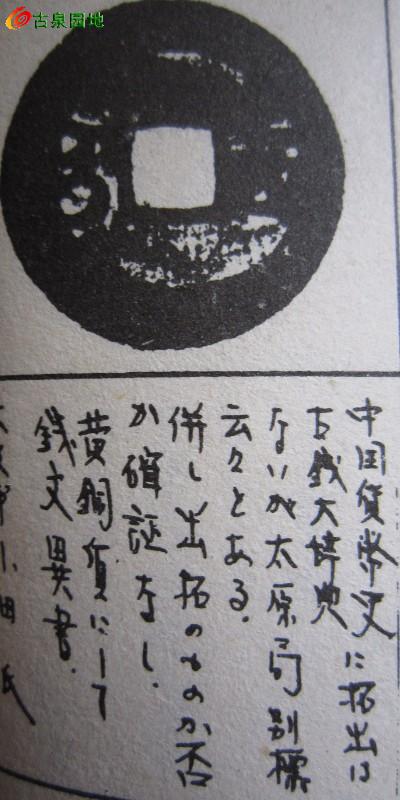 古泉园地
中国貨幣史に拓出は
古銭大辞典
ないが太原局別標
云々とある.
併し出拓のものか否
か確証なし.
黄銅質にして
銭文異書.
小田氏